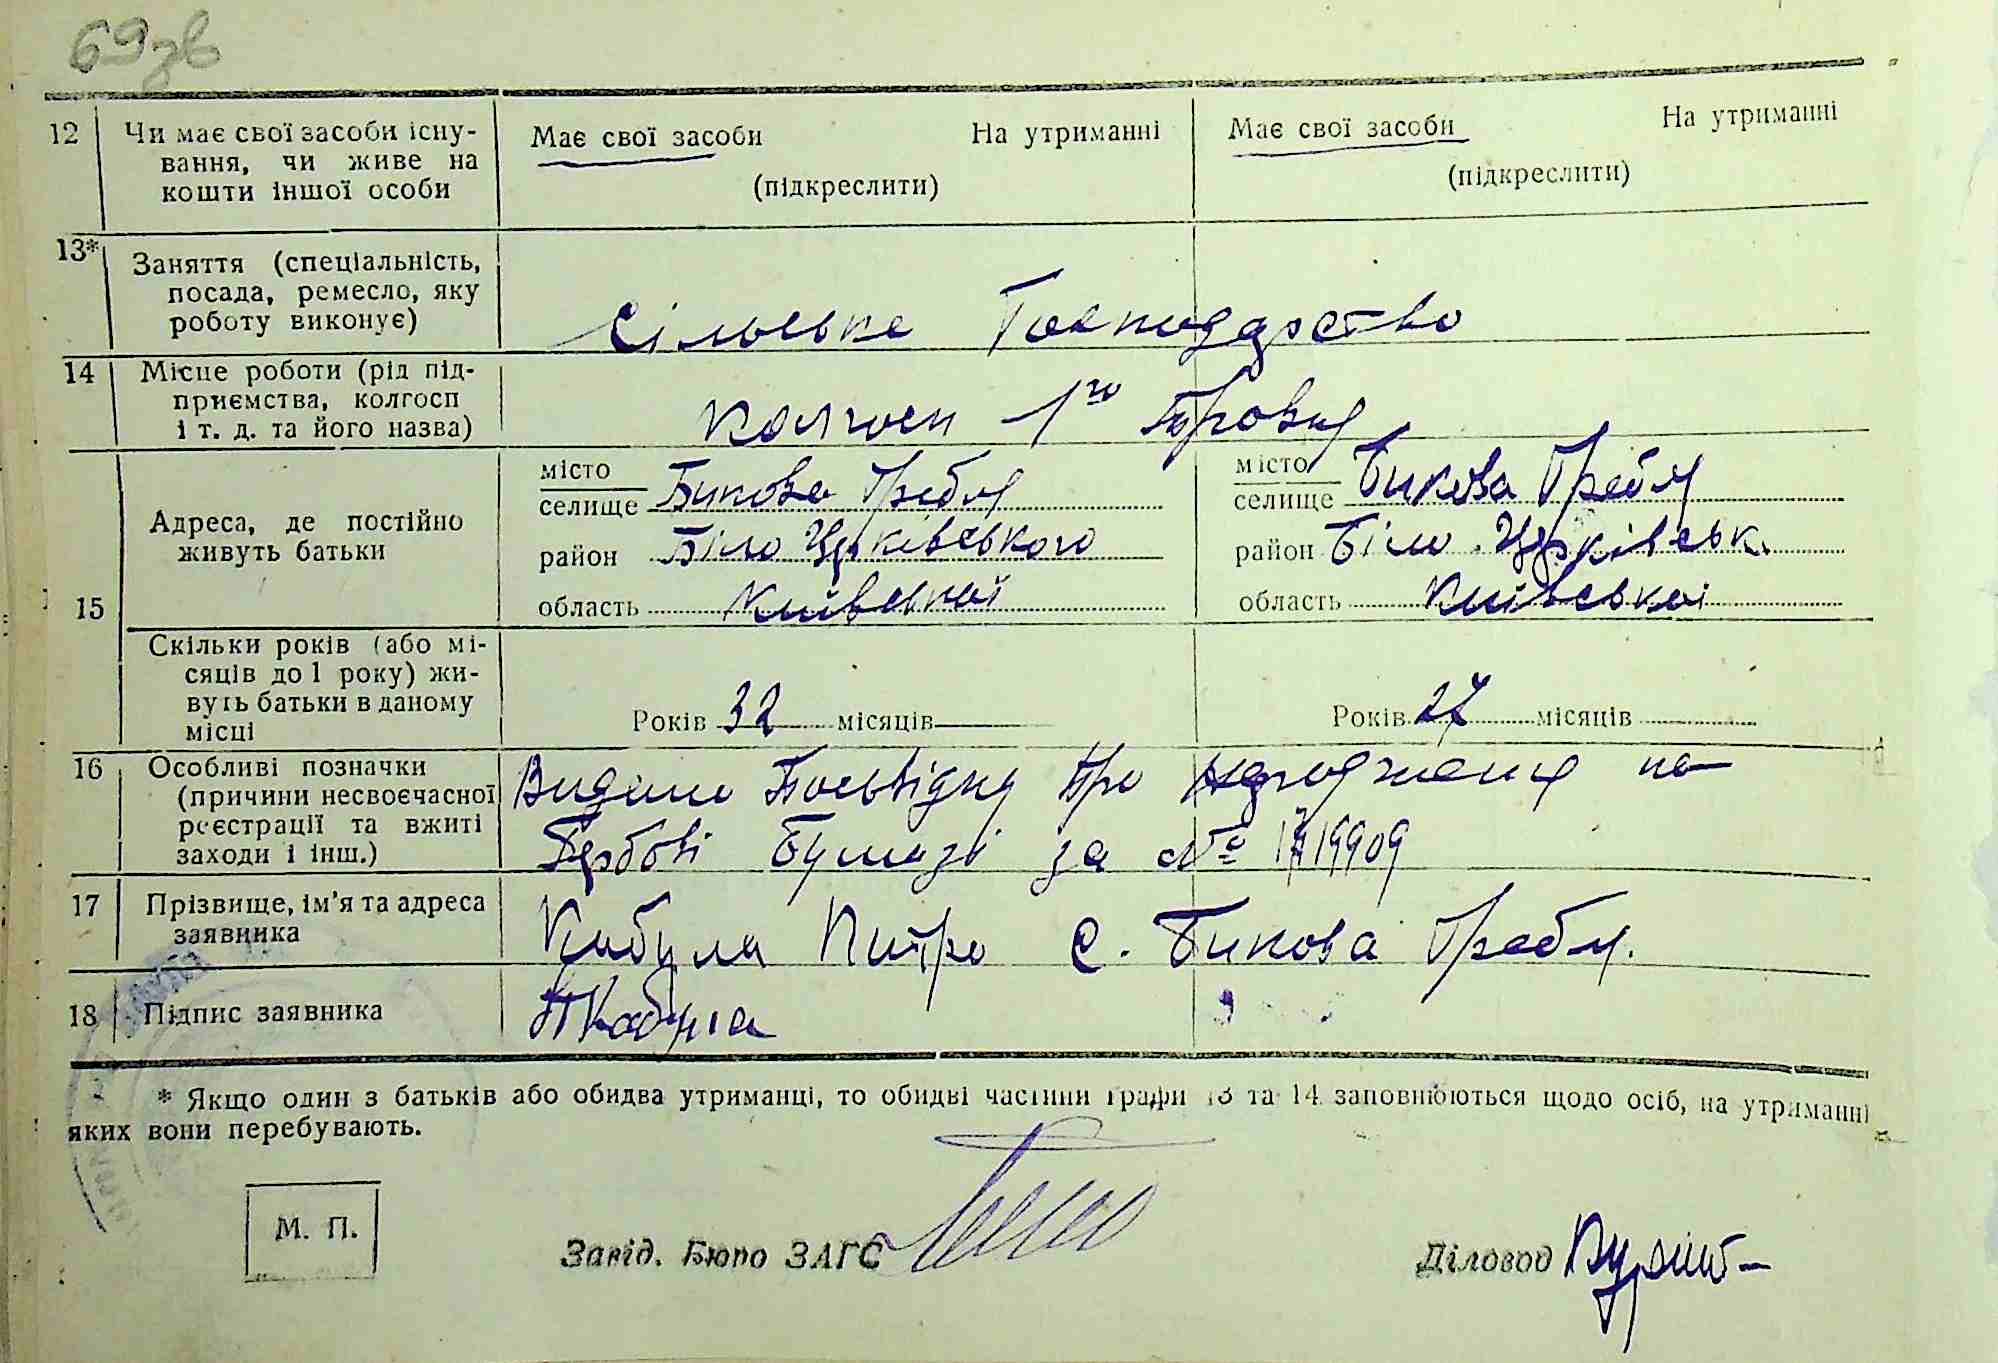 69зв
12 Чи має свої засоби існу-
вання, чи живе на
кошти іншої особи
Має свої засоби На утриманні
(підкреслити)
Має свої засоби На утриманні
(підкреслити)
13* Заняття (спеціальність,
посада, ремесло, яку
роботу виконує)
Сільське Господарство
14 Місце роботи (рід під-
приємства, колгосп
і т. д. та його назва)
колгосп 1го
15 Адреса, де постійно
живуть батьки
місто
селище Бикова Гребля
район Біло Церківського
область Київської
місто
селище Бикова Гребля
район Біло Церківськ.
область Київської
Скільки років (або мі-
сяців до 1 року) жи-
вуть батьки в даному
місці
Років 32 місяців
Років 27 місяців
16 Особливі позначки
(причини несвоєчасної
реєстрації та вжиті
заходи і інш.)
Видано Посвідку про народження на
Гербові Бумазі за №
17 Прізвище, ім’я та адреса
заявника
Кабула Питро С. Бикова Гребля.
18 Підпис заявника
ПКабула
* Якщо один з батьків або обидва утриманці, то обидві частини графи 13 та 14 заповнюються щодо осіб, на утриманні
яких вони перебувають.
М. П.
Завід. Бюро ЗАГС
Діловод